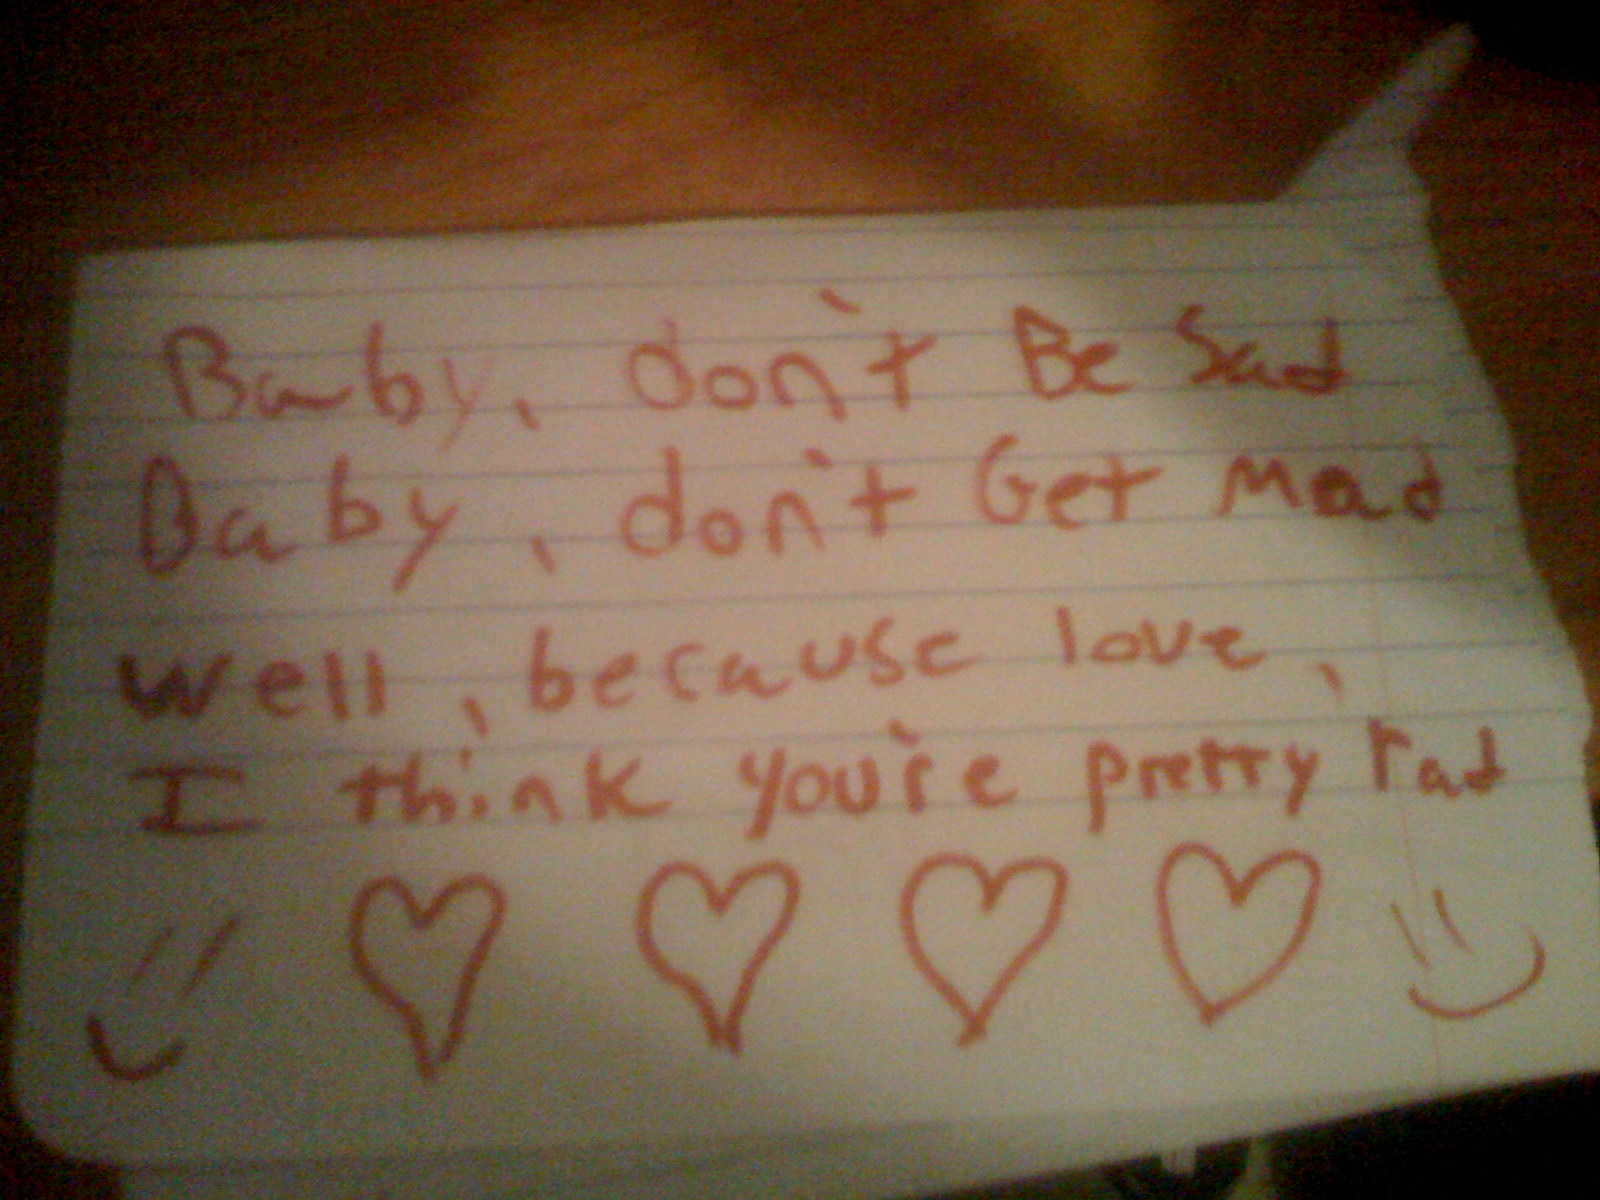 Baby, don't Be Sad
Baby, don't Get Mad
Well, because love,
I think you're pretty rad